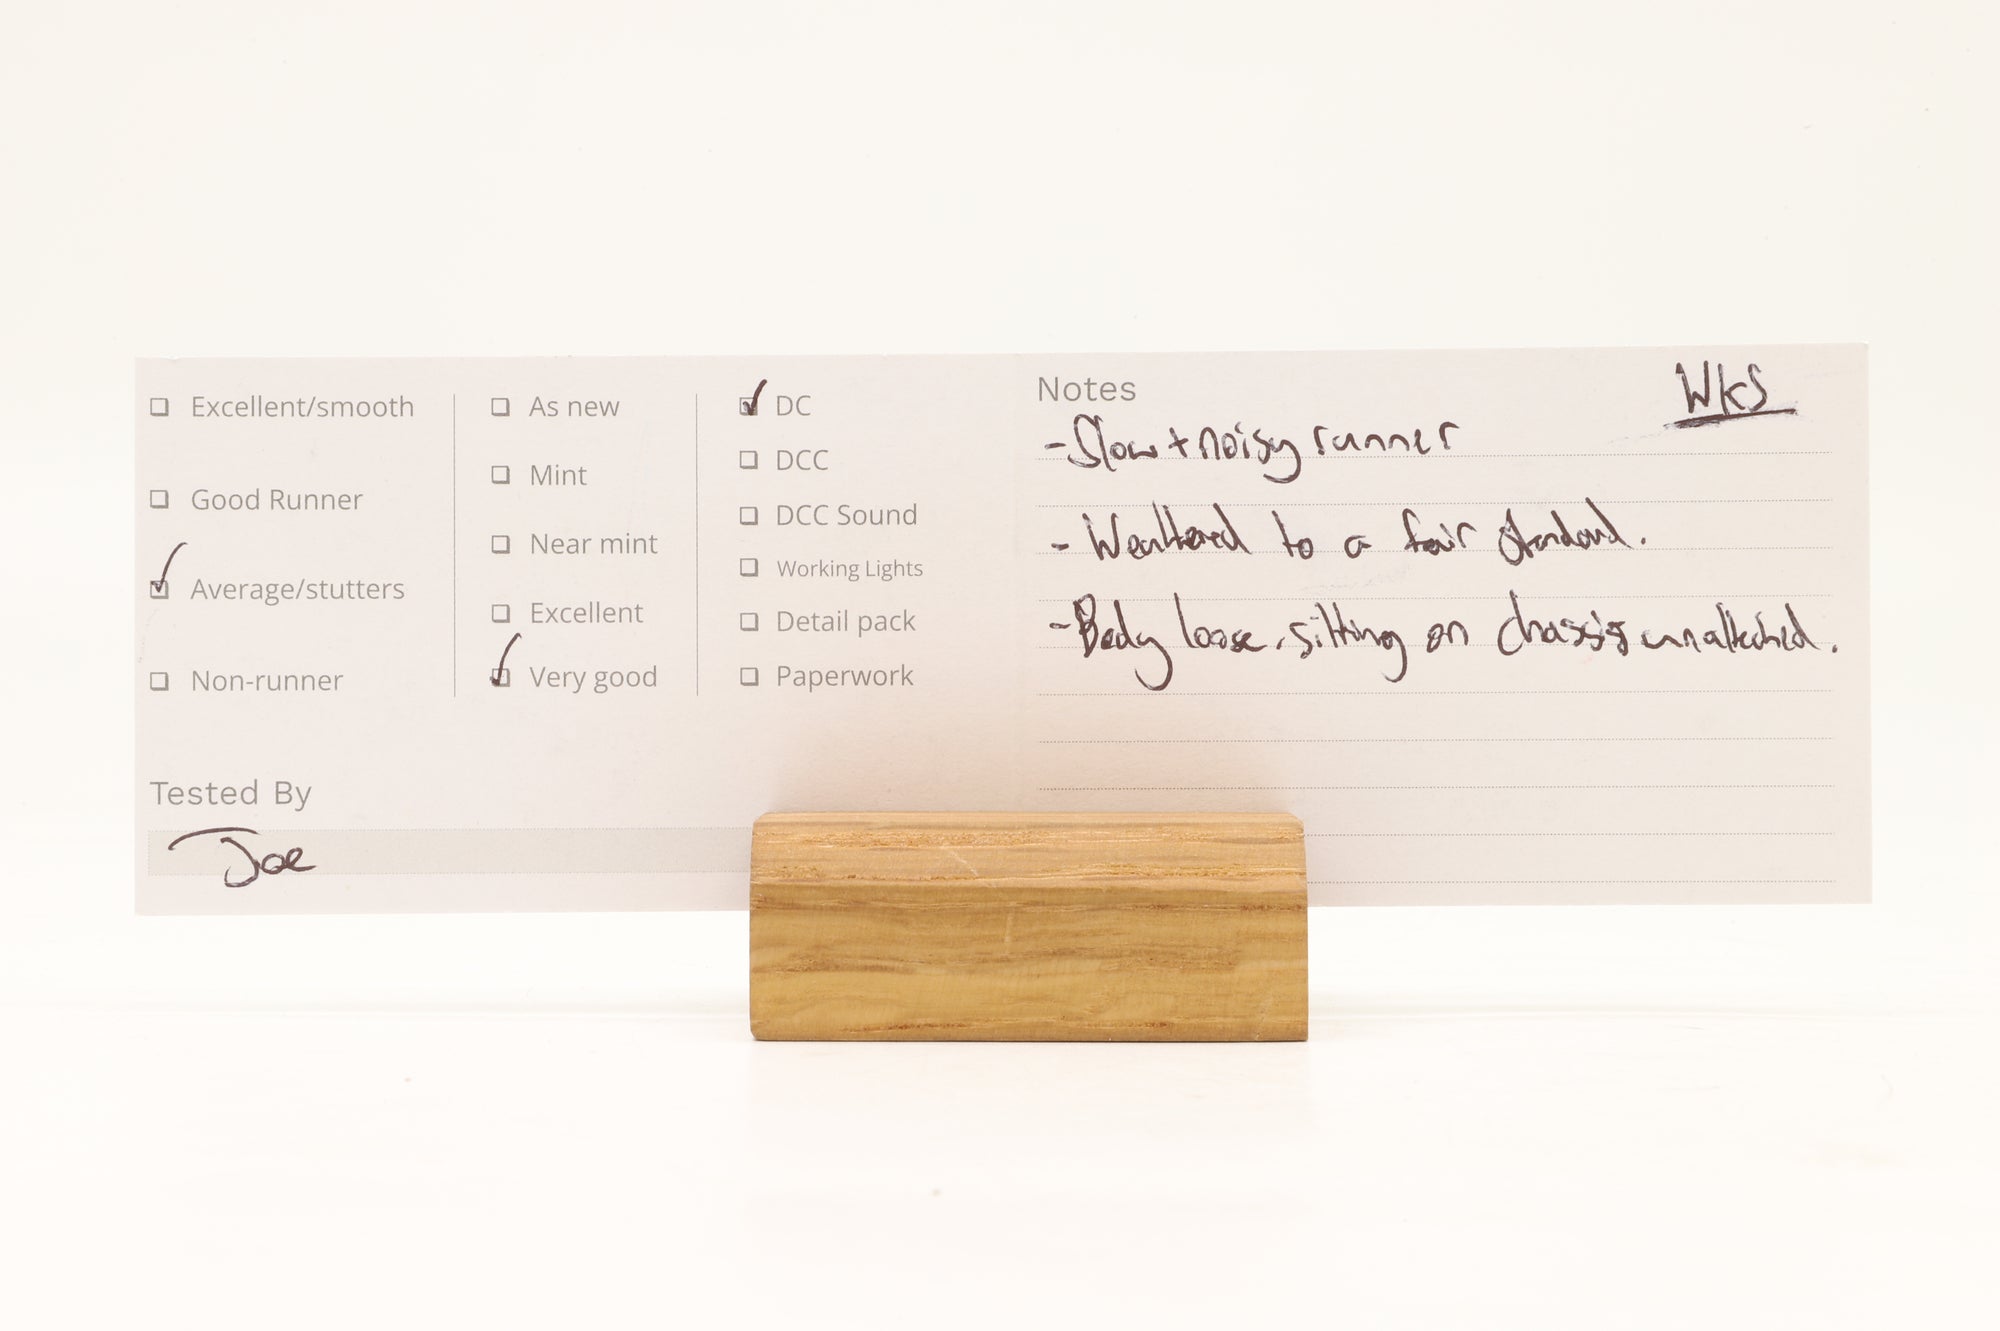 ☐ Excellent/smooth
☐ Good Runner
☑ Average/stutters
☐ Non-runner
☐ As new
☐ Mint
☐ Near mint
☐ Excellent
☑ Very good
☑ DC
☐ DCC
☐ DCC Sound
☐ Working Lights
☐ Detail pack
☐ Paperwork
Tested By
Joe
Notes
WKS
- Slow + noisy runner
- Weathered to a fair standard.
- Body loose, sitting on chassis unattached.